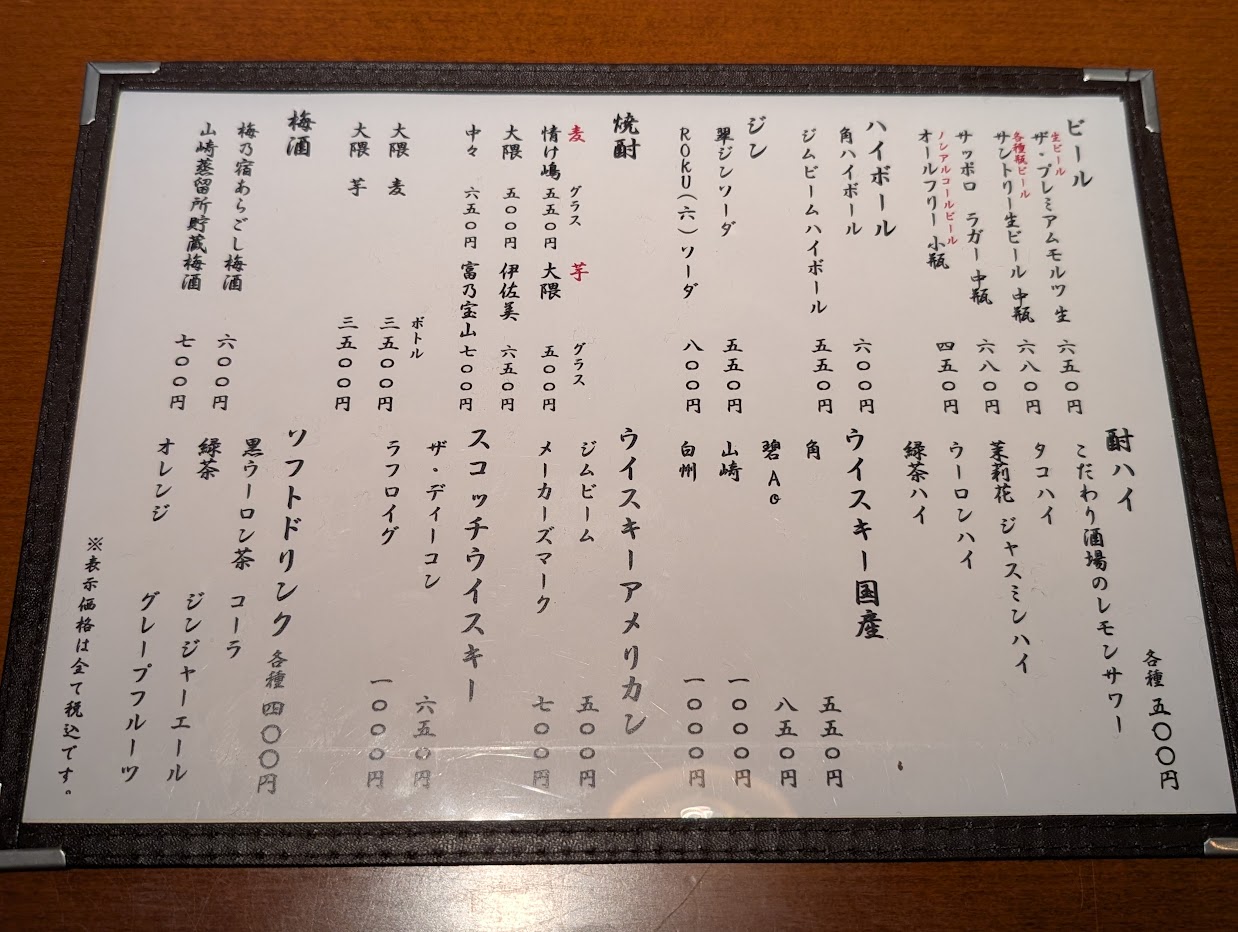 ビール
生ビール
ザ・プレミアムモルツ 生 六五〇円
各種瓶ビール
サントリー生ビール 中瓶 六八〇円
サッポロ ラガー 中瓶 六八〇円
ノンアルコールビール
オールフリー 小瓶 四五〇円
ハイボール
角ハイボール 六〇〇円
ジムビームハイボール 五五〇円
ジン
翠ジンソーダ 五五〇円
ROKU(六)ソーダ 八〇〇円
焼酎
麦 グラス 芋 グラス
情け嶋 五五〇円 大隈 五〇〇円
大隈 五〇〇円 伊佐美 六五〇円
中々 六五〇円 富乃宝山 七〇〇円
ボトル
大隈 麦 三五〇〇円
大隈 芋 三五〇〇円
梅酒
梅乃宿あらごし梅酒 六〇〇円
山崎蒸留所貯蔵梅酒 七〇〇円
酎ハイ 各種 五〇〇円
こだわり酒場のレモンサワー
タコハイ
茉莉花 ジャスミンハイ
ウーロンハイ
緑茶ハイ
ウイスキー国産
角 五五〇円
碧 Ao 八五〇円
山崎 一〇〇〇円
白州 一〇〇〇円
ウイスキーアメリカン
ジムビーム 五〇〇円
メーカーズマーク 七〇〇円
スコッチウイスキー
ザ・ディーコン 六五〇円
ラフロイグ 一〇〇〇円
ソフトドリンク 各種 四〇〇円
黒ウーロン茶 コーラ
緑茶 ジンジャーエール
オレンジ グレープフルーツ
※表示価格は全て税込です。